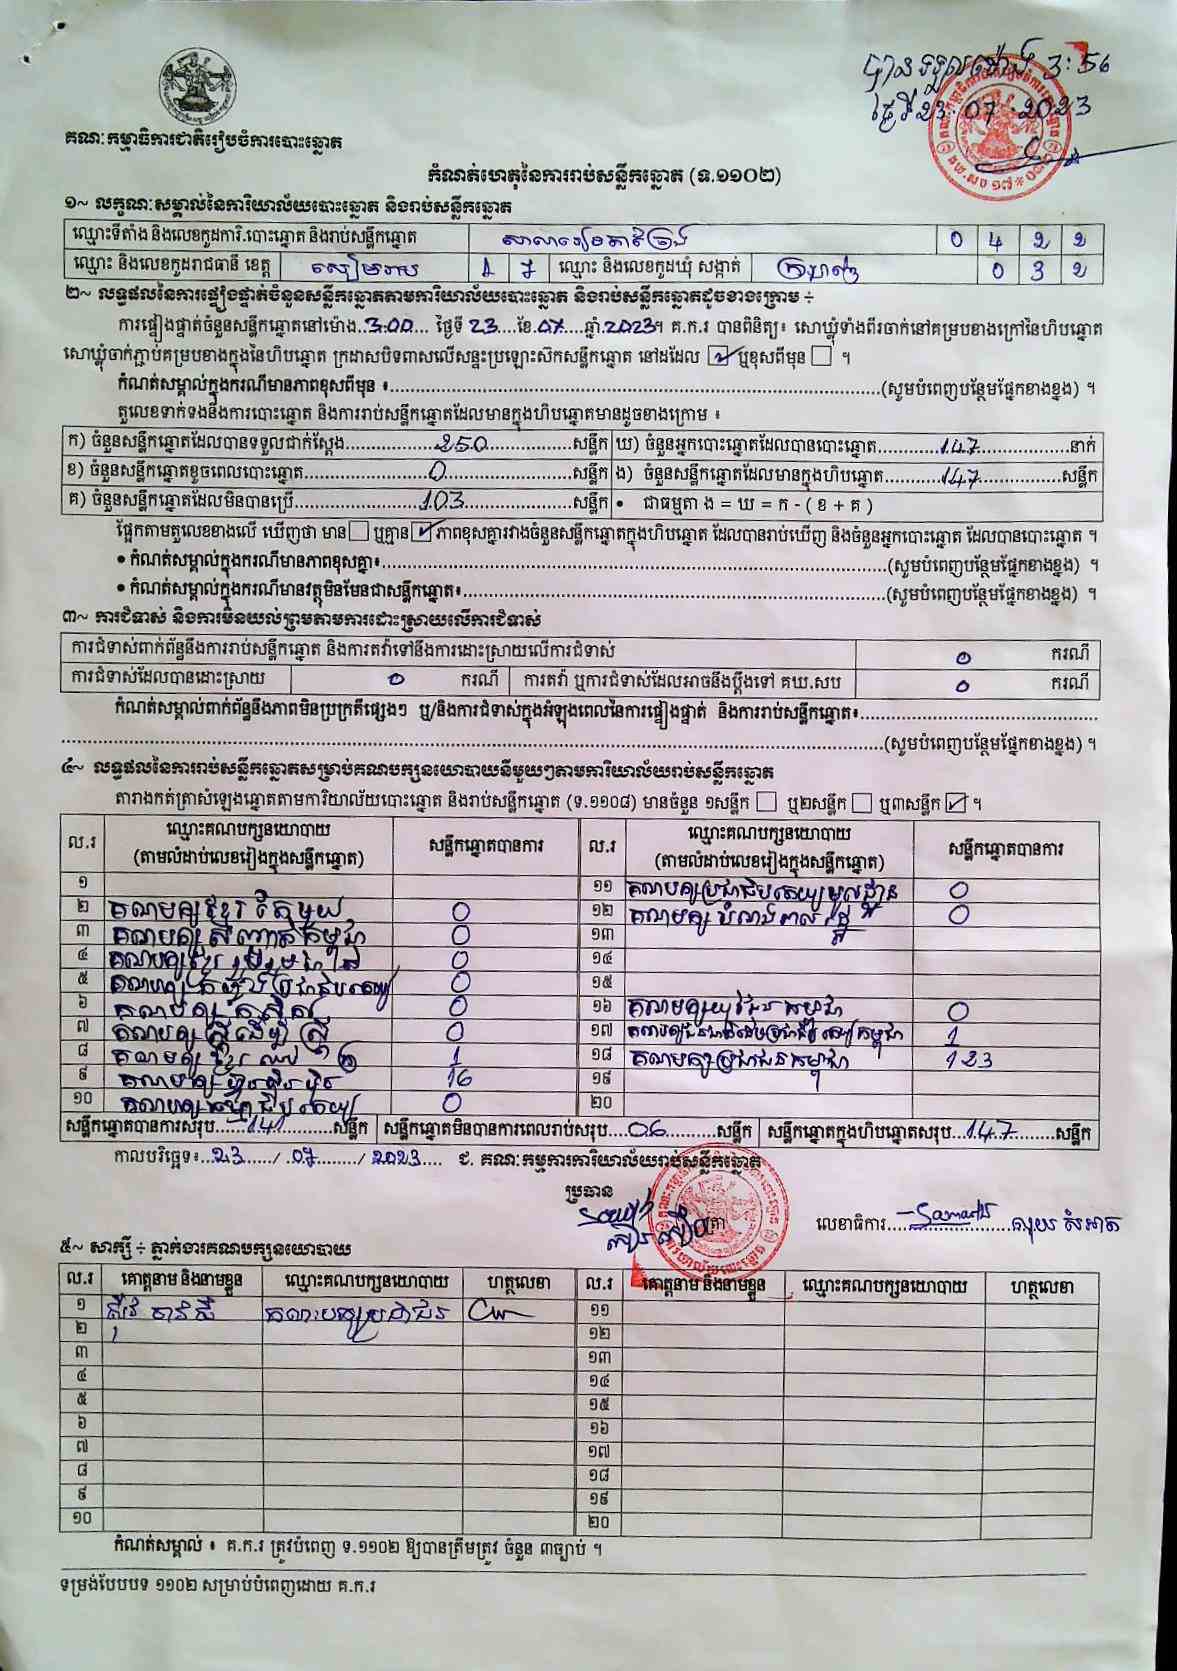 បានទទួលម៉ោង 3:56
ថ្ងៃទី23.07.2023
គណៈកម្មាធិការជាតិរៀបចំការបោះឆ្នោត
កំណត់ហេតុនៃការរាប់សន្លឹកឆ្នោត (ទ.១១០២)
១~ លក្ខណៈសម្គាល់នៃការិយាល័យបោះឆ្នោត និងរាប់សន្លឹកឆ្នោត
ឈ្មោះទីតាំង និងលេខកូដការិ.បោះឆ្នោត និងរាប់សន្លឹកឆ្នោត សាលារៀន 0 4 2 2
ឈ្មោះ និងលេខកូដរាជធានី ខេត្ត សៀមរាប 1 7 ឈ្មោះ និងលេខកូដឃុំ សង្កាត់ 0 3 2
២~ លទ្ធផលនៃការផ្ទៀងផ្ទាត់ចំនួនសន្លឹកឆ្នោតតាមការិយាល័យបោះឆ្នោត និងរាប់សន្លឹកឆ្នោតដូចខាងក្រោម ÷
ការផ្ទៀងផ្ទាត់ចំនួនសន្លឹកឆ្នោតនៅម៉ោង..3:00.... ថ្ងៃទី 23....ខែ.07.....ឆ្នាំ.2023។ គ.ក.រ បានពិនិត្យ៖ សោឃ្លុំទាំងពីរចាក់នៅគម្របខាងក្រៅនៃហិបឆ្នោត
សោឃ្លុំចាក់ភ្ជាប់គម្របខាងក្នុងនៃហិបឆ្នោត ក្រដាសបិទពាសលើសន្ទះប្រឡោះស៊កសន្លឹកឆ្នោត នៅដដែល ☑ ឬខុសពីមុន ☐ ។
កំណត់សម្គាល់ក្នុងករណីមានភាពខុសពីមុន ៖..........(សូមបំពេញបន្ថែមផ្នែកខាងខ្នង) ។
តួលេខទាក់ទងនឹងការបោះឆ្នោត និងការរាប់សន្លឹកឆ្នោតដែលមានក្នុងហិបឆ្នោតមានដូចខាងក្រោម ៖
ក) ចំនួនសន្លឹកឆ្នោតដែលបានទទួលជាក់ស្តែង..........250..........សន្លឹក ឃ) ចំនួនអ្នកបោះឆ្នោតដែលបានបោះឆ្នោត..........147..........នាក់
ខ) ចំនួនសន្លឹកឆ្នោតខូចពេលបោះឆ្នោត..........0..........សន្លឹក ង) ចំនួនសន្លឹកឆ្នោតដែលមានក្នុងហិបឆ្នោត..........147..........សន្លឹក
គ) ចំនួនសន្លឹកឆ្នោតដែលមិនបានប្រើ..........103..........សន្លឹក • ជាធម្មតា ង = ឃ = ក - ( ខ + គ )
ផ្អែកតាមតួលេខខាងលើ ឃើញថា មាន ☐ ឬគ្មាន ☑ ភាពខុសគ្នារវាងចំនួនសន្លឹកឆ្នោតក្នុងហិបឆ្នោត ដែលបានរាប់ឃើញ និងចំនួនអ្នកបោះឆ្នោត ដែលបានបោះឆ្នោត ។
• កំណត់សម្គាល់ក្នុងករណីមានភាពខុសគ្នា៖..........(សូមបំពេញបន្ថែមផ្នែកខាងខ្នង) ។
• កំណត់សម្គាល់ក្នុងករណីមានវត្ថុមិនមែនជាសន្លឹកឆ្នោត៖..........(សូមបំពេញបន្ថែមផ្នែកខាងខ្នង) ។
៣~ ការជំទាស់ និងការមិនយល់ព្រមតាមការដោះស្រាយលើការជំទាស់
ការជំទាស់ពាក់ព័ន្ធនឹងការរាប់សន្លឹកឆ្នោត និងការតវ៉ាទៅនឹងការដោះស្រាយលើការជំទាស់ 0 ករណី
ការជំទាស់ដែលបានដោះស្រាយ 0 ករណី ការតវ៉ា ឬការជំទាស់ដែលអាចនឹងប្តឹងទៅ គឃ.សប 0 ករណី
កំណត់សម្គាល់ពាក់ព័ន្ធនឹងភាពមិនប្រក្រតីផ្សេងៗ ឬ/និងការជំទាស់ក្នុងអំឡុងពេលនៃការផ្ទៀងផ្ទាត់ និងការរាប់សន្លឹកឆ្នោត៖..........
..........(សូមបំពេញបន្ថែមផ្នែកខាងខ្នង) ។
៤~ លទ្ធផលនៃការរាប់សន្លឹកឆ្នោតសម្រាប់គណបក្សនយោបាយនីមួយៗតាមការិយាល័យរាប់សន្លឹកឆ្នោត
តារាងកត់ត្រាសំឡេងឆ្នោតតាមការិយាល័យបោះឆ្នោត និងរាប់សន្លឹកឆ្នោត (ទ.១១០៨) មានចំនួន ១សន្លឹក ☐ ឬ២សន្លឹក ☐ ឬ៣សន្លឹក ☑ ។
ល.រ ឈ្មោះគណបក្សនយោបាយ (តាមលំដាប់លេខរៀងក្នុងសន្លឹកឆ្នោត) សន្លឹកឆ្នោតបានការ ល.រ ឈ្មោះគណបក្សនយោបាយ (តាមលំដាប់លេខរៀងក្នុងសន្លឹកឆ្នោត) សន្លឹកឆ្នោតបានការ
១ ១១ គណបក្សប្រជាធិបតេយ្យមូលដ្ឋាន 0
២ គណបក្សខ្មែរតែមួយ 0 ១២ គណបក្ស 0
៣ គណបក្សសញ្ជាតិកម្ពុជា 0 ១៣
៤ គណបក្សខ្មែររួបរួមជាតិ 0 ១៤
៥ គណបក្ស ប្រជាធិបតេយ្យ 0 ១៥
៦ គណបក្សកសិករ 0 ១៦ គណបក្សយុវជនកម្ពុជា 0
៧ គណបក្សស្ត្រីដើម្បីស្ត្រី 0 ១៧ 1
៨ គណបក្សខ្មែរ 1 ១៨ គណបក្សប្រជាជនកម្ពុជា 123
៩ គណបក្សហ៊្វុនស៊ិនប៉ិច 16 ១៩
១០ គណបក្ស 0 ២០
សន្លឹកឆ្នោតបានការសរុប......141..........សន្លឹក សន្លឹកឆ្នោតមិនបានការពេលរាប់សរុប....06..........សន្លឹក សន្លឹកឆ្នោតក្នុងហិបឆ្នោតសរុប..147..........សន្លឹក
កាលបរិច្ឆេទ៖..23....../..07......../..2023.... ជ. គណៈកម្មការការិយាល័យរាប់សន្លឹកឆ្នោត
ប្រធាន
លេខាធិការ
៥~ សាក្សី ÷ ភ្នាក់ងារគណបក្សនយោបាយ
ល.រ គោត្តនាម និងនាមខ្លួន ឈ្មោះគណបក្សនយោបាយ ហត្ថលេខា ល.រ គោត្តនាម និងនាមខ្លួន ឈ្មោះគណបក្សនយោបាយ ហត្ថលេខា
១ គណៈបក្សប្រជាជន ១១
២ ១២
៣ ១៣
៤ ១៤
៥ ១៥
៦ ១៦
៧ ១៧
៨ ១៨
៩ ១៩
១០ ២០
កំណត់សម្គាល់ ៖ គ.ក.រ ត្រូវបំពេញ ទ.១១០២ ឱ្យបានត្រឹមត្រូវ ចំនួន ៣ច្បាប់ ។
ទម្រង់បែបបទ ១១០២ សម្រាប់បំពេញដោយ គ.ក.រ